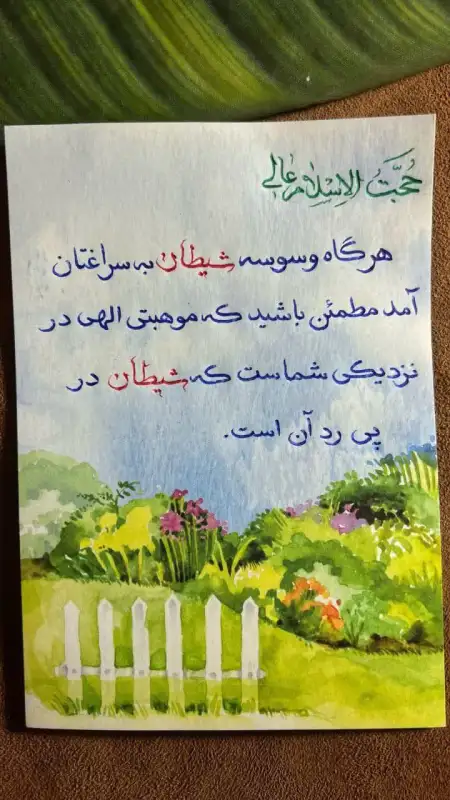 حُجَّتُ الاِسْلام عالی
هرگاه وسوسه شیطان به سراغتان
آمد مطمئن باشید که موهبتی الهی در
نزدیکی شماست که شیطان در
پی رد آن است.